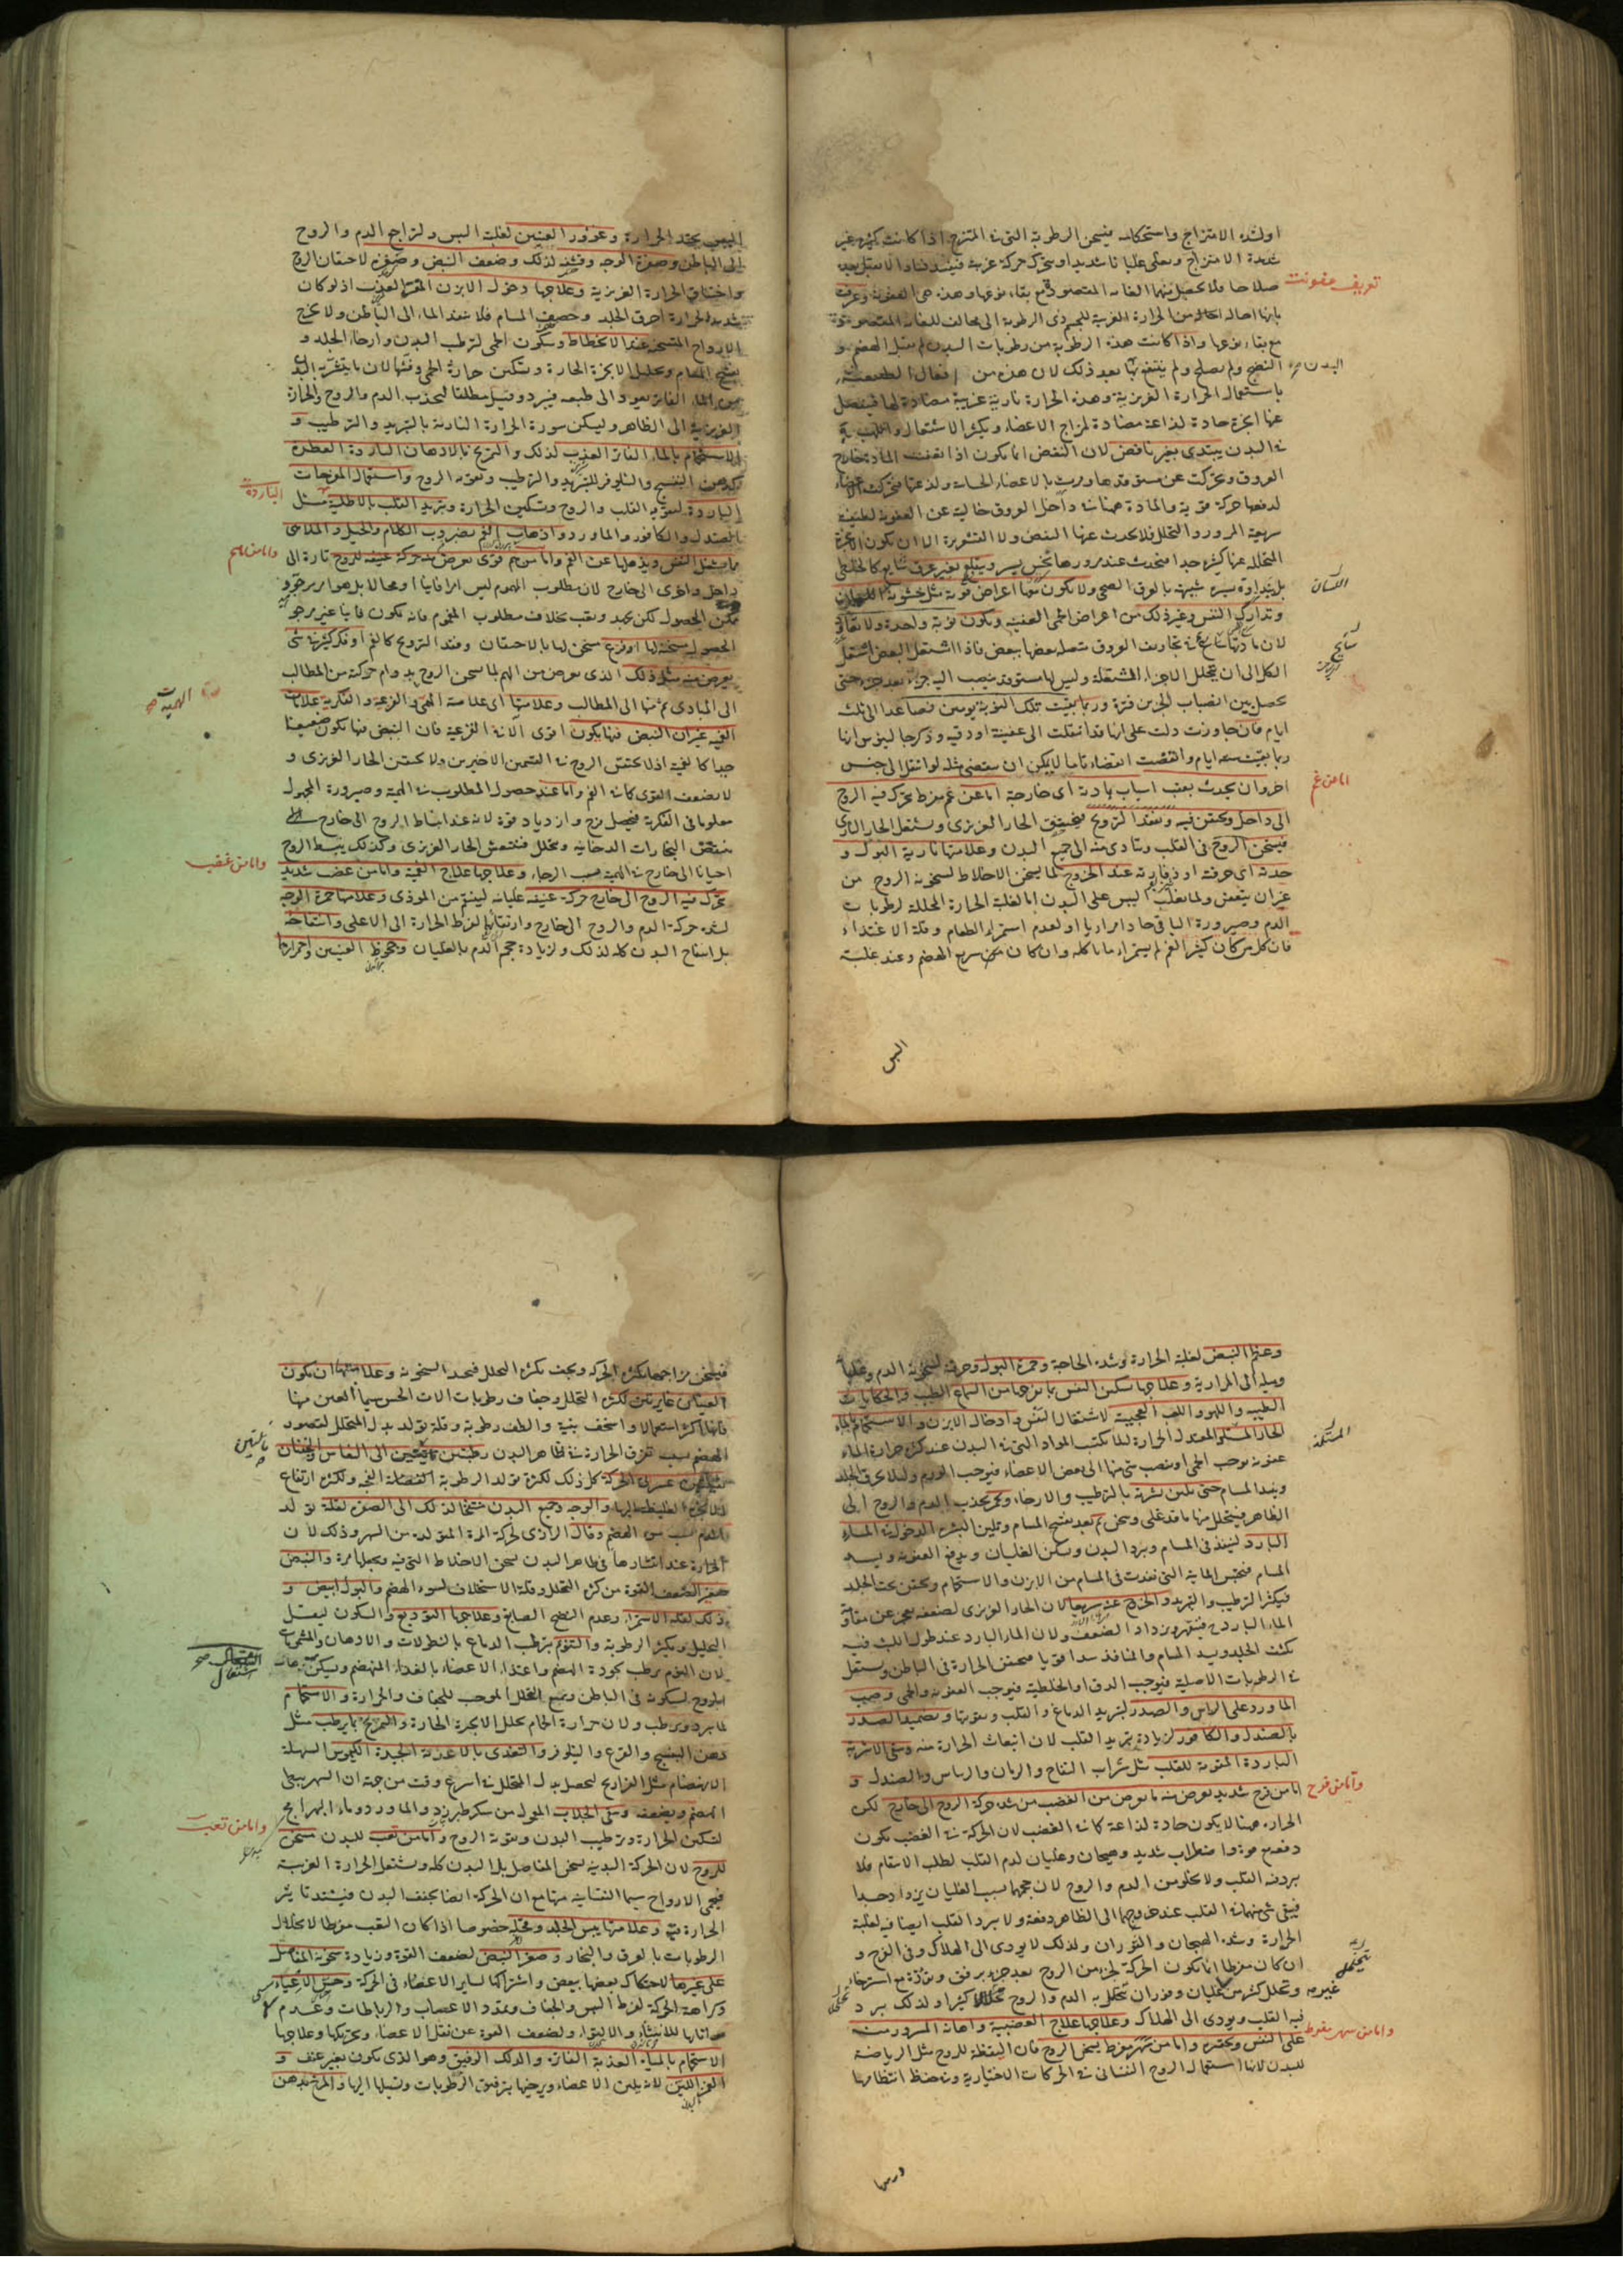 اولشدة الامتزاج واستحكامه فيسخن الرطوبة التى فى الممتزج اذا كانت كثيرة غير
شديدة الامتزاج ويغلى غليانا شديدا ويتحرك حركة غريبة فيفسد فسادا لا يقبل بعده
صلاحا فلا يحصل منها الغاية المقصودة مع بقاء نوعها وهذه هى العفونة وعرفت
تعريف عفونت
بانها احالة من الحرارة الغريبة للجسم ذى الرطوبة الى مخالف للغاية المقصودة
مع بقاء نوعها واذا كانت هذه الرطوبة من رطوبات البدن لم يقبل الهضم و
النضج ولم يصلح ولم ينتفع بها بعد ذلك لان هذه من افعال الطبيعة
البدن صح
باستعمال الحرارة الغريزية وهذه الحرارة نارية غريبة مضادة لها فينفصل
عنها ابخرة حادة لذاعة مضادة لمزاج الاعضاء ويكثر الاشتعال والتلهب
فى البدن يبتدى بغير نافض لان النفض انما يكون اذا تعفنت المادة خارج
العروق وتحركت عن مستوقدها ومرت بالاعضاء الحساسة ولذعتها فتحركت الاعضاء
لدفعها حركة قوية والمادة ههنا فى داخل العروق خالية عن العفونة لطيفة
سريعة المرور والتحلل فلا يحدث عنها النفض ولا القشعريرة الا ان يكون الابخرة
المتحللة عنها كثيرة جدا فتحدث عند مرورها نخس يسير ويقلع بغير عرق شايع كالخلطى
بل بنداوة يسيرة شبيهة بالعرق الصحى ولا يكون معها اعراض قوية مثل خشونة اللسان
اللسان
وتدارك النفس وغير ذلك من اعراض الحمى العفنية ويكون نوبة واحدة ولا تعاود
لان مادتها فى تجاويف العروق متصلة بعضها ببعض فاذا اشتعل البعض اشتعل
الكل الى ان يتحلل الاجزاء المشتعلة وليس لها مستوقد ينصب اليه جزء بعد جزء حتى
يحصل بين انصباب الجزئين فترة وربما بقيت تلك النوبة يومين فصاعدا الى ثلث
ايام فان جاوزت دلت على انها قد انتقلت الى عفنية او دقية وذكر جالينوس انها
ربما بقيت ستة ايام وانقضت انقضاء تاما لا يمكن ان ينقضى مثله لو انتقل الى جنس
اخر وان يحدث بعقب اسباب بادية اى خارجية اما عن غم مفرط يتحرك فيه الروح
اما من غم
الى داخل ويحتقن فيه ويفقد الترويح فيختنق الحار الغريزى ويشتعل الحار النارى
فيسخن الروح فى القلب ويتادى منه الى جميع البدن وعلامتها نارية البول و
حدته اى حرقته او ذفارته عند الخروج لما يسخن الاخلاط لسخونة الروح من
غير ان يتعفن ولما يغلب اليبس على البدن اما لغلبة الحرارة المحللة لرطوبات
الدم وصيرورة الباقى حادا مراريا او لعدم استمراء الطعام وقلة الاغتذاء
فان كل من كان كثير الغم لم يستمرئ ما ياكله وان كان ممن سريع الهضم وعند غلبة
اليبس
اليبس يحتد الحرارة وغؤور العينين لغلبة اليبس ولتراجع الدم والروح
الى الباطن وصفرة الوجه وقشفه لذلك وضعف النبض وصغره لاحتقان الروح
واختناق الحرارة الغريزية وعلاجها دخول الابزن المفتر العذب اذ لو كان
شديد الحرارة احرق الجلد وخصف المسام فلا ينفذ الماء الى الباطن ولا يخرج
الارواح المتسخنة عند الانحطاط وسكون الحمى لترطب البدن وارخاء الجلد و
تفتيح المسام وتحليل الابخرة الحارة وتسكين حرارة الحمى
من الماء الفاتر يعود الى طبعه فيبرد وقيل مطلقا ليجذب الدم والروح والحرارة
الغريزية الى الظاهر وليسكن سورة الحرارة النارية بالتبريد والترطيب و
الاستحمام بالماء الفاتر العذب لذلك والتمريخ بالادهان الباردة العطرة
كدهن البنفسج والنيلوفر للتبريد والترطيب وتقوية الروح واستعمال المفرحات
الباردة لتقوية القلب والروح وتسكين الحرارة وتبريد القلب بالاطلية مثل
الباردة
الصندل والكافور والماورد واذهاب الغم بضروب الكلام والحيل والملاهى
مما يشغل النفس ويذهلها عن الغم واما من هم قوى يعرض منه حركة عنيفة للروح تارة الى
واما من هم
داخل واخرى الى خارج لان مطلوب المهموم ليس امرا فائتا او محالا بل هو امر مرجو و
ممكن الحصول لكن بجهد وتعب بخلاف مطلوب المغموم فانه يكون فايتا غير مرجو
الحصول سخنه لها او فزع سخن لها بالاحتقان وفقد الترويح كالغم او فكر كثير فى شئ
يعرض منه مثل ذلك الذى يعرض من الهم لما يسخن الروح بدوام حركته من المطالب
الى المبادى ثم منها الى المطالب وعلامتها اى علامة الهمية والفزعية والفكرية علامات
الهمية صح
الغمية غير ان النبض فيها يكون اقوى الا فى الفزعية فان النبض فيها يكون ضعيفا
جدا كالغمية اذ لا يحتقن الروح فى القسمين الاخيرين ولا يحتقن الحار الغريزى و
لا يضعف القوى كما فى الغم واما عند حصول المطلوب فى الهمية وصيرورة المجهول
معلوما فى الفكرية فيحصل فرح وازدياد قوة لانه عند انبساط الروح الى خارج
ينتقص البخارات الدخانية ويتحلل فينتعش الحار الغريزى وكذلك ينبسط الروح
احيانا الى خارج فى الهمية بحسب الرجاء وعلاجها علاج الغمية واما من غضب شديد
واما من غضب
يتحرك فيه الروح الى خارج حركة عنيفة غليانية لينتقم من الموذى وعلامتها حمرة الوجه
لشدة حركة الدم والروح الى خارج وارتقائهما لفرط الحرارة الى الاعلى وانتفاخه
بل انتفاخ البدن كله لذلك ولزيادة حجم الدم بالغليان وجحوظ العينين واحمرارهما
وعظم النبض لغلبة الحرارة وشدة الحاجة وحمرة البول وحرقته لسخونة الدم وغليانه
وميله الى المرارية وعلاجها تسكين النفس بما يفرحها من السماع الطيب والحكايات
الطيبة واللهو واللعب العجيبة لاشتغال النفس وادخال الابزن والاستحمام بالماء
الحار المعتدل الحرارة لئلا يكتسب المواد التى فى البدن عند كثرة حرارة الماء
المستكنة
عفونة يوجب الحمى او ينصب شئ منها الى بعض الاعضاء فيوجب الورم ولئلا يحرق الجلد
ويسد المسام حتى تلين بشرته بالترطيب والارخاء ويجذب الدم والروح الى
الظاهر فيتحلل منها ما قد غلى وسخن ثم بعد تفتيح المسام وتليين البشرة الدخول فى الماء
البارد لينفذ فى المسام ويبرد البدن ويسكن الغليان ويدفع العفونة ويسد
المسام فيحتبس المائية التى نفذت فى المسام من الابزن والاستحمام ويحتقن تحت الجلد
فيكثر الترطيب والتبريد والخروج عنه سريعا لان الحار الغريزى لضعفه يعجز عن مقاومة
الماء البارد فينقهر ويزداد الضعف ولان الماء البارد عند طول اللبث فيه
يكثف الجلد ويسد المسام والمنافذ سدا قويا فيحتقن الحرارة فى الباطن ويشتعل
فى الرطوبات الاصلية فيوجب الدق او الخلطية فيوجب العفونة والحمى وصب
الماورد على الراس والصدر لتبريد الدماغ والقلب وتقويتها وتضميد الصدر
بالصندل والكافور لزيادة تبريد القلب لان انبعاث الحرارة منه وسقى الاشربة
الباردة المقوية للقلب مثل شراب التفاح والرمان والريباس والصندل و
اما من فرح شديد يعرض منه ما يعرض من الغضب من شدة حركة الروح الى خارج لكن
واما من فرح
الحرارة ههنا لا يكون حادة لذاعة كما فى الغضب لان الحركة فى الغضب يكون
دفعة مع قوة واضطراب شديد وهيجان وغليان لدم القلب لطلب الانتقام فلا
يبرد فيه القلب ولا يخلو من الدم والروح لان حجمهما بسبب الغليان يزداد جدا
فيبقى شئ منهما فى القلب عند خروجهما الى الظاهر دفعة ولا يبرد القلب ايضا فيه لغلبة
الحرارة وشدة الهيجان والثوران ولذلك لا يودى الى الهلاك وفى الفرح و
ان كان مفرطا انما يكون الحركة لجزء من الروح بعد جزء برفق وتؤدة مع استرخاء
غيره وتحلل كثير من غير غليان وفوران يتخلخل به الدم والروح تخلخلا كثيرا ولذلك يبرد
فيه القلب ويودى الى الهلاك وعلاجها علاج الغضبية واهانة السرور منه
على النفس وتحقيره واما من سهر مفرط يسخن الروح فان اليقظة للروح مثل الرياضة
واما من سهر مفرط
للبدن لانها استعمال الروح النفسانى فى الحركات الاختيارية وتحفظ انتظامها
فيسخن مزاجها بكثرة الحركة ويجف بكثرة التحلل فيحد السخونة وعلامتها ان يكون
العينان غايرتين لكثرة التحلل وجفاف رطوبات الات الحس سيما العين منها
فانها اكثر استعمالا واسخف بنية والطف رطوبة وقلة تولد بدل المتحلل لقصور
الهضم بسبب تفرق الحرارة فى ظاهر البدن رطبتين مايلتين الى النعاس والجفنان
مايلتين صح
ثقيلين عسرى الحركة كل ذلك لكثرة تولد الرطوبة الفضلية الفجة ولكثرة ارتفاع
الابخرة الغليظة اليها والوجه وجميع البدن منتفخا لذلك الى الصفرة لقلة تولد
الدم بسبب سوء الهضم وقال الرازى لحركة المرة المتولدة من السهر وذلك لان
الحرارة عند انتشارها فى ظاهر البدن يسخن الاخلاط التى فيه ويجعلها مرة والنبض
صغيرا لضعف القوة من كثرة التحلل وقلة الاستخلاف لسوء الهضم والبول ابيض و
ذلك لقلة الاستمراء وعدم النضج الصابغ وعلاجها التوديع والسكون ليقل
التحليل ويكثر الرطوبة والتنويم بترطيب الدماغ بالنطولات والادهان والمشمومات
لان النوم يرطب بجودة الهضم واغتذاء الاعضاء بالغذاء المنهضم ويسكن
الروح لسكونه فى الباطن ويمنع التحلل الموجب للجفاف والحرارة والاستحمام
لما يبرد ويرطب ولان حرارة الحمام تحلل الابخرة الحارة والتمريخ بما يرطب مثل
دهن البنفسج والقرع والنيلوفر والتغذى بالاغذية الجيدة الكيموس السهلة
الانهضام مثل الفراريج ليحصل بدل المتحلل فى اسرع وقت من جهة ان السهر يبطئ
الهضم ويضعفه وسقى الجلاب المعمول من سكر طبرزد والماورد وماء البهرامج
لتسكين الحرارة وترطيب البدن وتقوية الروح واما من تعب للبدن مسخن
واما من تعب
للروح لان الحركة البدنية تسخن المفاصل بل البدن كله وتشتعل الحرارة الغريبة
فيحمى الارواح سيما النفسانية منها مع ان الحركة ايضا يجفف البدن فيشتد تاثير
الحرارة فيه وعلامتها يبس الجلد وقحله خصوصا اذا كان التعب مفرطا لانحلال
الرطوبات بالعرق والبخار وصغر النبض لضعف القوة وزيادة سخونة المفاصل
على غيرها لاحتكاك بعضها ببعض واشتراكها لساير الاعضاء فى الحركة وحس الاعياء
كراهة الحركة لفرط اليبس والجفاف وتمدد الاعصاب والرباطات وعدم
مواتاتها للانثناء والالتواء ولضعف القوة عن نقل الاعضاء وتحريكها وعلاجها
الاستحمام بالمياه العذبة الفاترة والدلك الرفيق وهو الذى يكون بغير عنف و
الغمز اللين لانه يلين الاعضاء ويرخيها بترقيق الرطوبات وتسييلها اليها والتمريخ بدهن